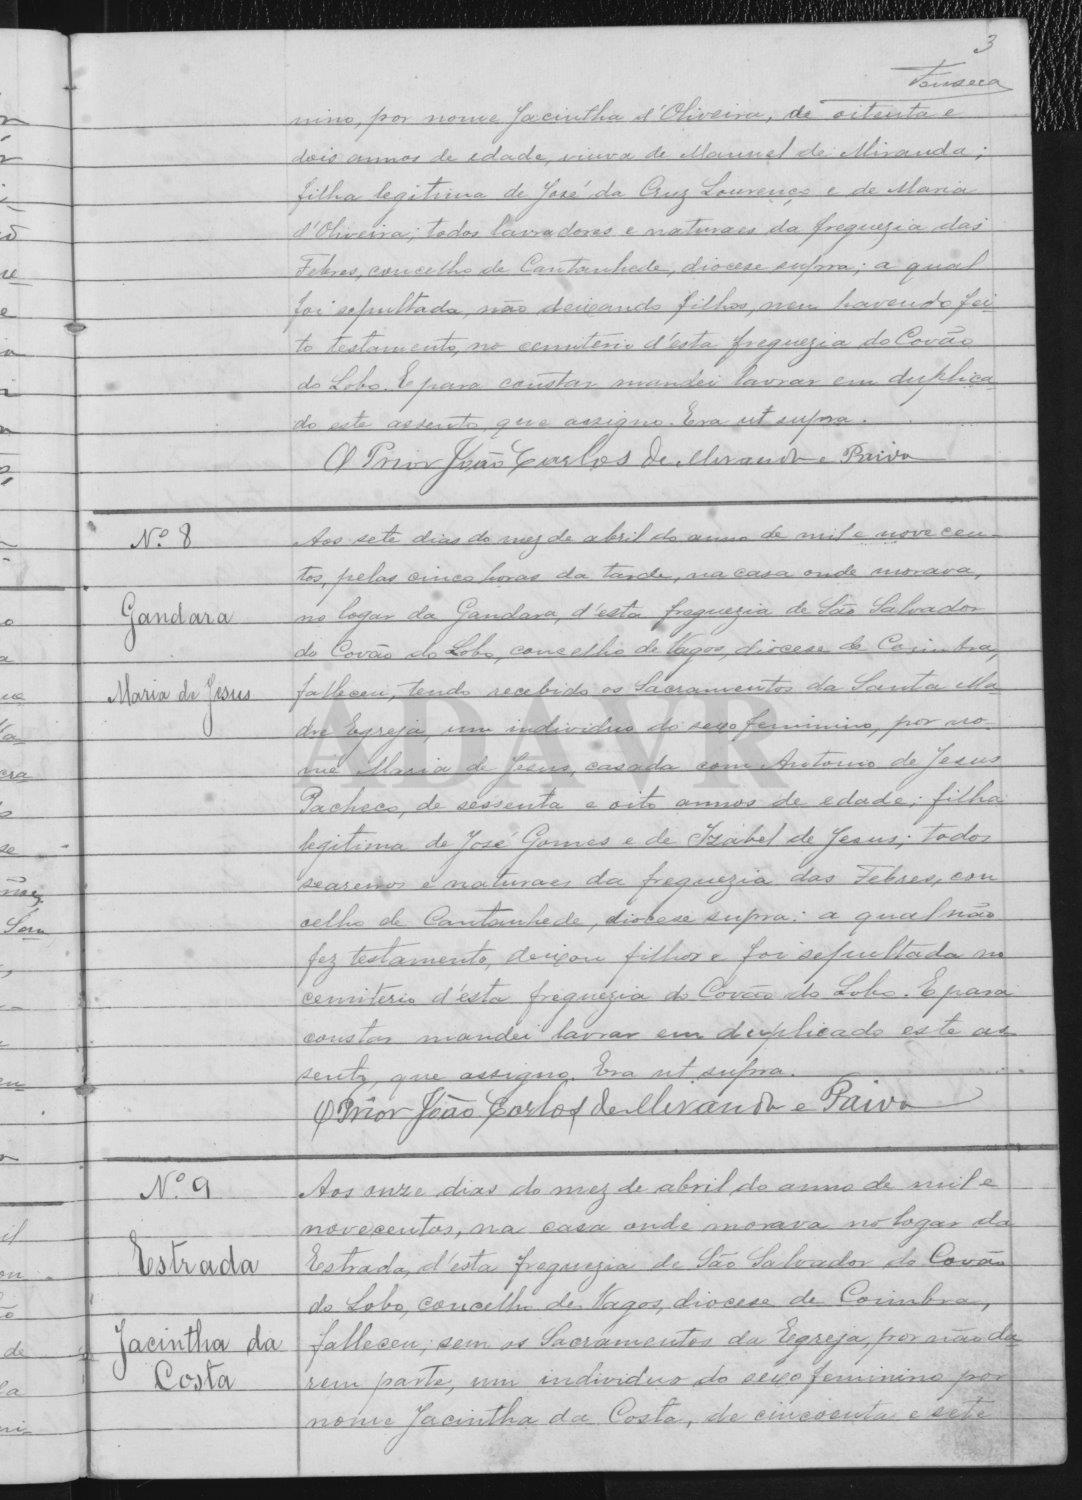 3
Fonseca
nino, por nome Jacintha d'Oliveira, de oitenta e
dois annos de edade, viuva de Manuel de Miranda;
filha legitima de José da Cruz Lourenço e de Maria
d'Oliveira; todos lavradores e naturaes da freguezia das
Febres, concelho de Cantanhede, diocese supra; a qual
foi sepultada, não deixando filhos, nem havendo fei-
to testamento, no cemiterio d'esta freguezia do Covão
do Lobo. E para constar mandei lavrar em duplica-
do este assento, que assigno. Era ut supra.
O Prior João Carlos de Miranda e Paiva
Nº 8
Gandara
Maria de Jesus
Aos sete dias do mez de abril do anno de mil e novecen-
tos, pelas cinco horas da tarde, na casa onde morava,
no logar da Gandara, d'esta freguezia de São Salvador
do Covão do Lobo, concelho de Vagos, diocese de Coimbra,
falleceu, tendo recebido os Sacramentos da Santa Ma-
dre Egreja um individuo do sexo feminino, por no-
me Maria de Jesus, casada com Antonio de Jesus
Pacheco, de sessenta e oito annos de edade; filha
legitima de José Gomes e de Izabel de Jesus; todos
seareiros e naturaes da freguezia das Febres, con
celho de Cantanhede, diocese supra: a qual não
fez testamento, deixou filhos e foi sepultada no
cemiterio d'esta freguezia do Covão do Lobo. E para
constar mandei lavrar em duplicado este as-
sento, que assigno. Era ut supra.
O Prior João Carlos de Miranda e Paiva
Nº 9
Estrada
Jacintha da
Costa
Aos onze dias do mez de abril do anno de mil e
novecentos, na casa onde morava no logar da
Estrada, d'esta freguezia de São Salvador do Covão
do Lobo, concelho de Vagos, diocese de Coimbra,
falleceu, sem os Sacramentos da Egreja, por não da-
rem parte, um individuo do sexo feminino por
nome Jacintha da Costa, de cincoenta e sete
ADAVR